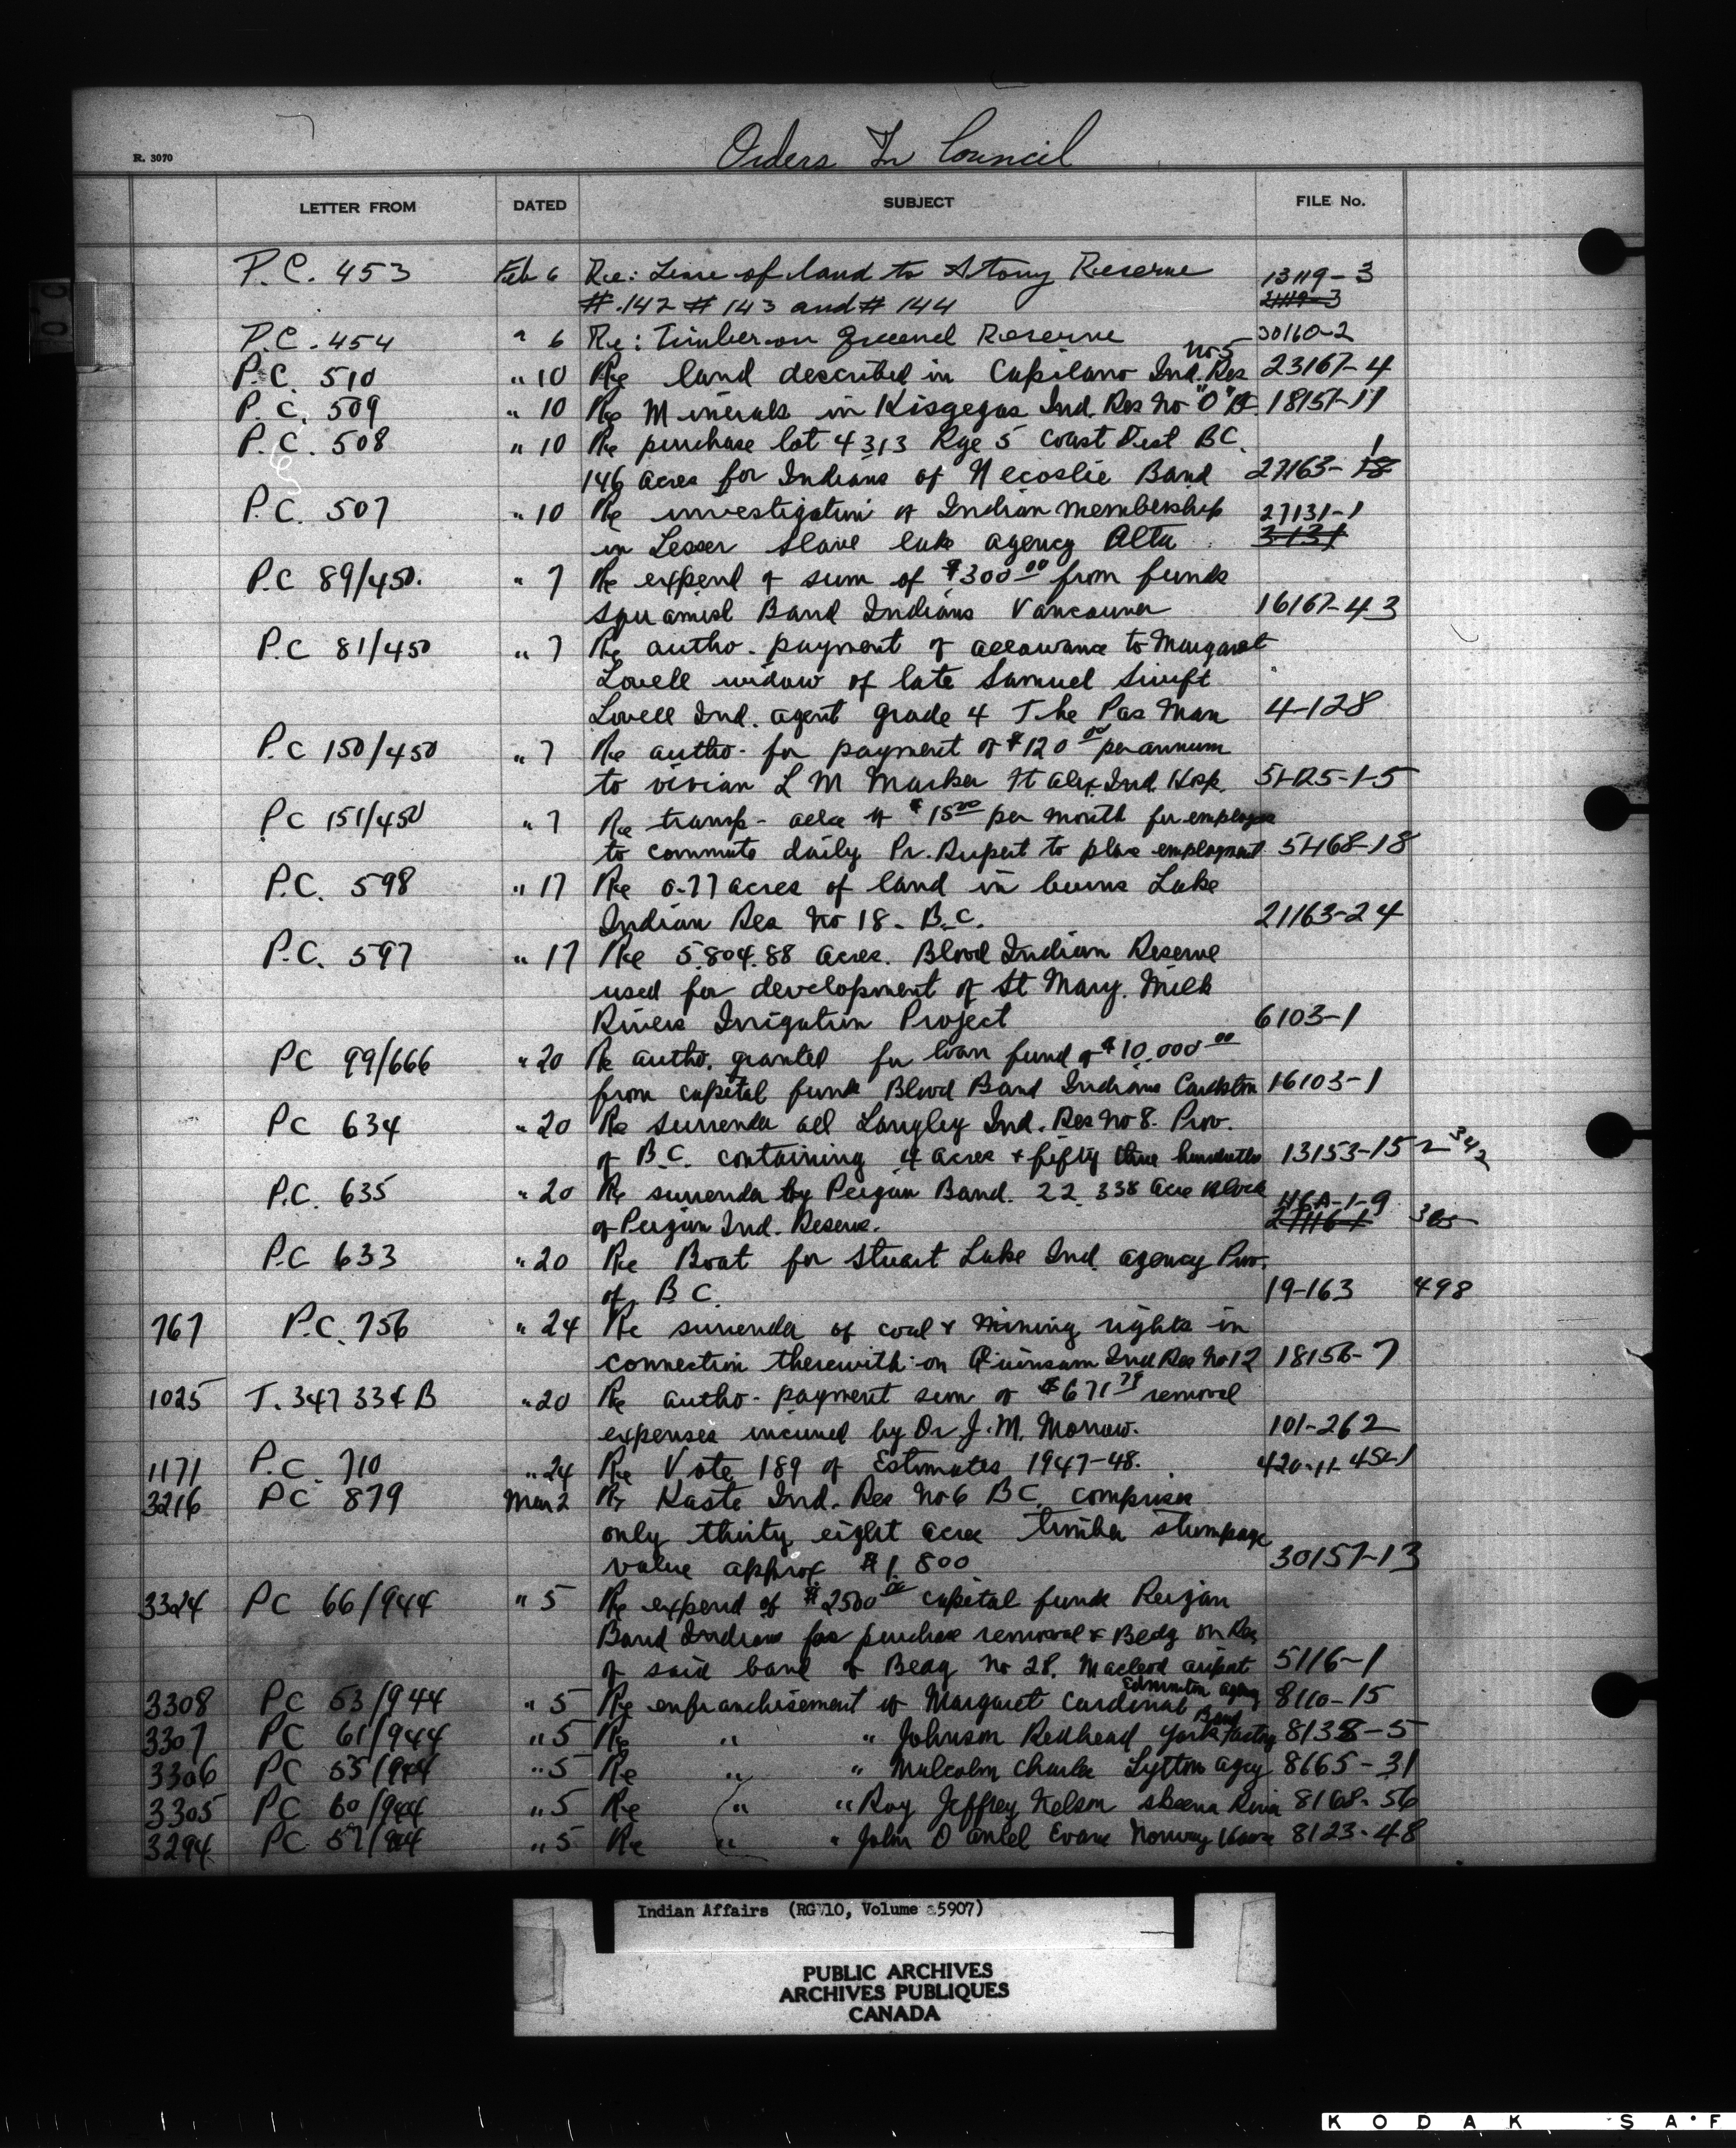 Orders In Council
R. 3070
LETTER FROM DATED SUBJECT FILE No.
P.C. 453 Feb 6 Re: Lease of land to Stony Reserve 13119-3
#142 #143 and #144 21119-3
P.C. 454 " 6 Re: Timber on Reserve 30160-2
No 5
P.C. 510 " 10 Re land described in Capilano Ind. Res 23167-4
P.C. 509 " 10 Re Minerals in Kisgegas Ind. Res No "0" 18157-11
P.C. 508 " 10 Re purchase lot 4313 Rge 5 Coast Dist BC. 1
146 acres for Indians of Necoslie Band 27163-18
P.C. 507 " 10 Re investigation of Indian membership 27131-1
in Lesser Slave lake agency Alta 3131
P.C 89/450. " 7 Re expend of sum of $300.00 from funds
Squamish Band Indians Vancouver 16167-43
P.C 81/450 " 7 Re autho. payment of allowance to Margaret
Lovell widow of late Samuel Swift
Lovell Ind. agent grade 4 The Pas Man 4-128
P.C 150/450 " 7 Re autho. for payment of $120.00 per annum
to Vivian L M Ft Alex Ind. Hosp. 51-125-1-5
PC 151/450 " 7 Re transp- allce of $15.00 per month for employee
to commute daily Pr. Rupert to place employment 51-168-18
P.C. 598 " 17 Re 0.77 acres of land in burns Lake
Indian Res No 18. B.C. 21163-24
P.C. 597 " 17 Re 5,804.88 acres. Blood Indian Reserve
used for development of St Mary. Milk
Rivers Irrigation Project 6103-1
PC 99/666 " 20 Re autho. granted for loan fund of $10,000.00
from capital funds Blood Band Indians Cardston 16103-1
PC 634 " 20 Re surrender all Langley Ind. Res No 8. Prov.
of B.C. containing 4 acres & fifty three hundredths 13153-15 2 342
P.C. 635 " 20 Re surrender by Peigan Band. 22.338 acre block 116A-1-9
of Peigan Ind. Reserve. 27116-1 305
P.C 633 " 20 Re Boat for Stuart Lake Ind. agency Prov.
of B C. 19-163 498
767 P.C. 756 " 24 Re surrender of coal & mining rights in
connection therewith on Quinsam Ind Res No 12 18156-7
1025 T. 347 334 B " 20 Re autho. payment sum of $671.79 removal
expenses incurred by Dr J.M. Morrow. 101-262
1171 P.C. 710 " 24 Re Vote 189 of Estimates 1947-48. 420-11-45-1
3216 PC 879 Mar 2 Re Kaste Ind. Res No 6 BC comprises
only thirty eight acres timber stumpage
value approx. $1,800 30157-13
3324 PC 66/944 " 5 Re expend of $2500.00 capital funds Peigan
Band Indians for purchase removal & Bedg on Res
of said band of Bedg No 28. Macleod airport 5116-1
Edmonton agency
3308 PC 63/944 " 5 Re enfranchisement of Margaret Cardinal 8110-15
Band
3307 PC 61/944 " 5 Re " " Johnson Redhead York Factory 8138-5
3306 PC 55/944 " 5 Re " " Malcolm Charlie Lytton agcy 8165-31
3305 PC 60/944 " 5 Re " " Roy Jeffrey Nelson Skeena River 8168-56
3294 PC 57/944 " 5 Re " " John Daniel Evans Norway House 8123-48
Indian Affairs (RG 10, Volume 5907)
PUBLIC ARCHIVES
ARCHIVES PUBLIQUES
CANADA
KODAK SAF